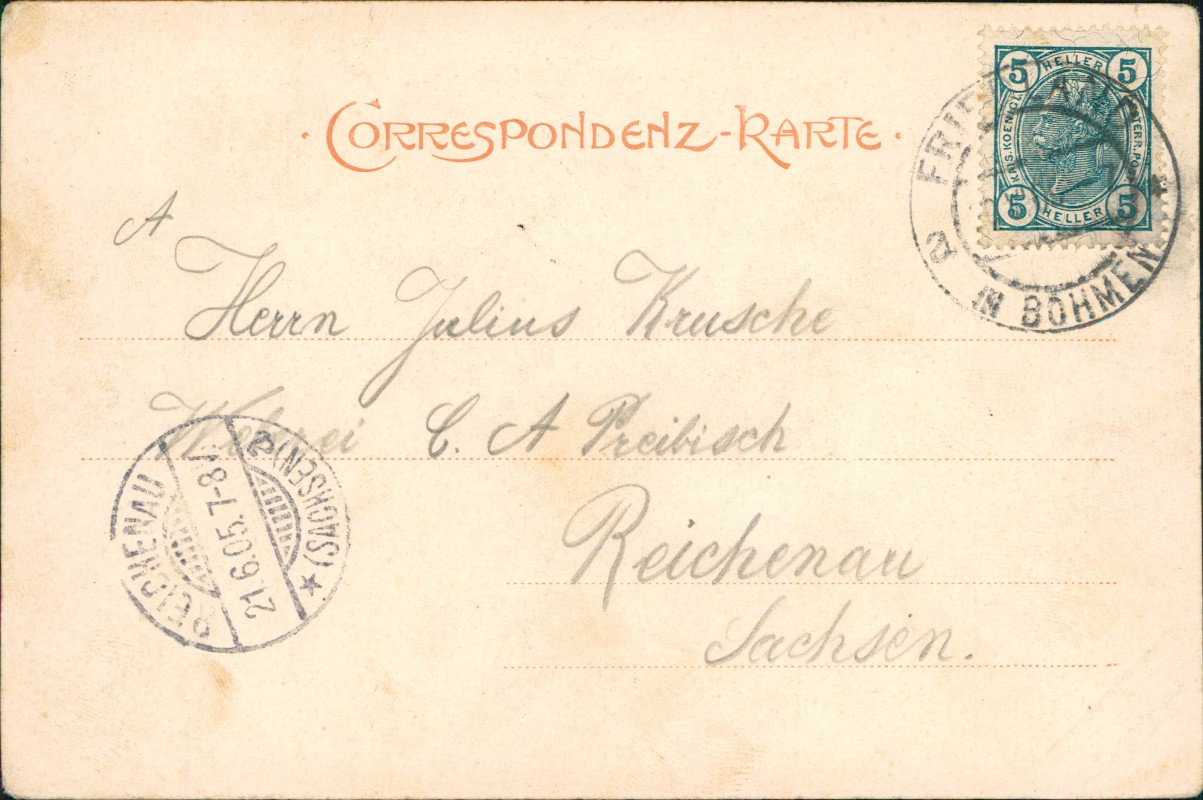 · CORRESPONDENZ-KARTE ·
5 HELLER 5
KAIS. KOENIGL.
5 HELLER 5
2 IN BÖHMEN *
A
Herrn Julius Krusche
Weberei C. A Preibisch
Reichenau
Sachsen.
REICHENAU
21.6.05. 7-8
(SACHSEN) *